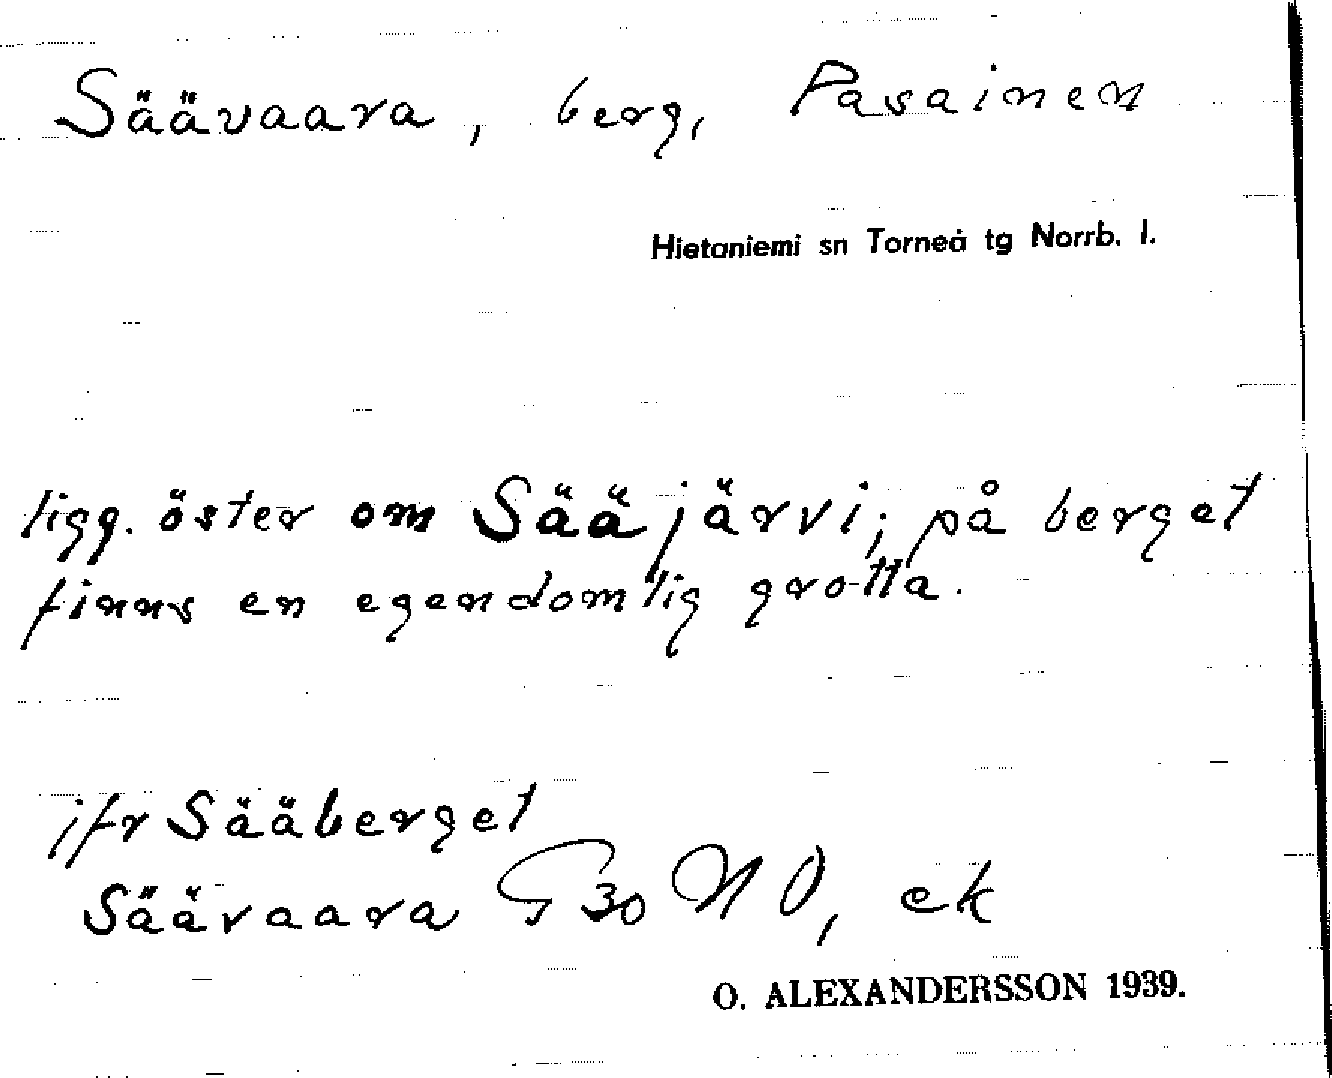 Säävaara, berg, Pasainen
Hietaniemi sn Torneå tg Norrb. l.
ligg. öster om Sääjärvi; på berget
finns en egendomlig grotta.
jfr Sääberget
Säävaara G 30 NO, ek
O. ALEXANDERSSON 1939.